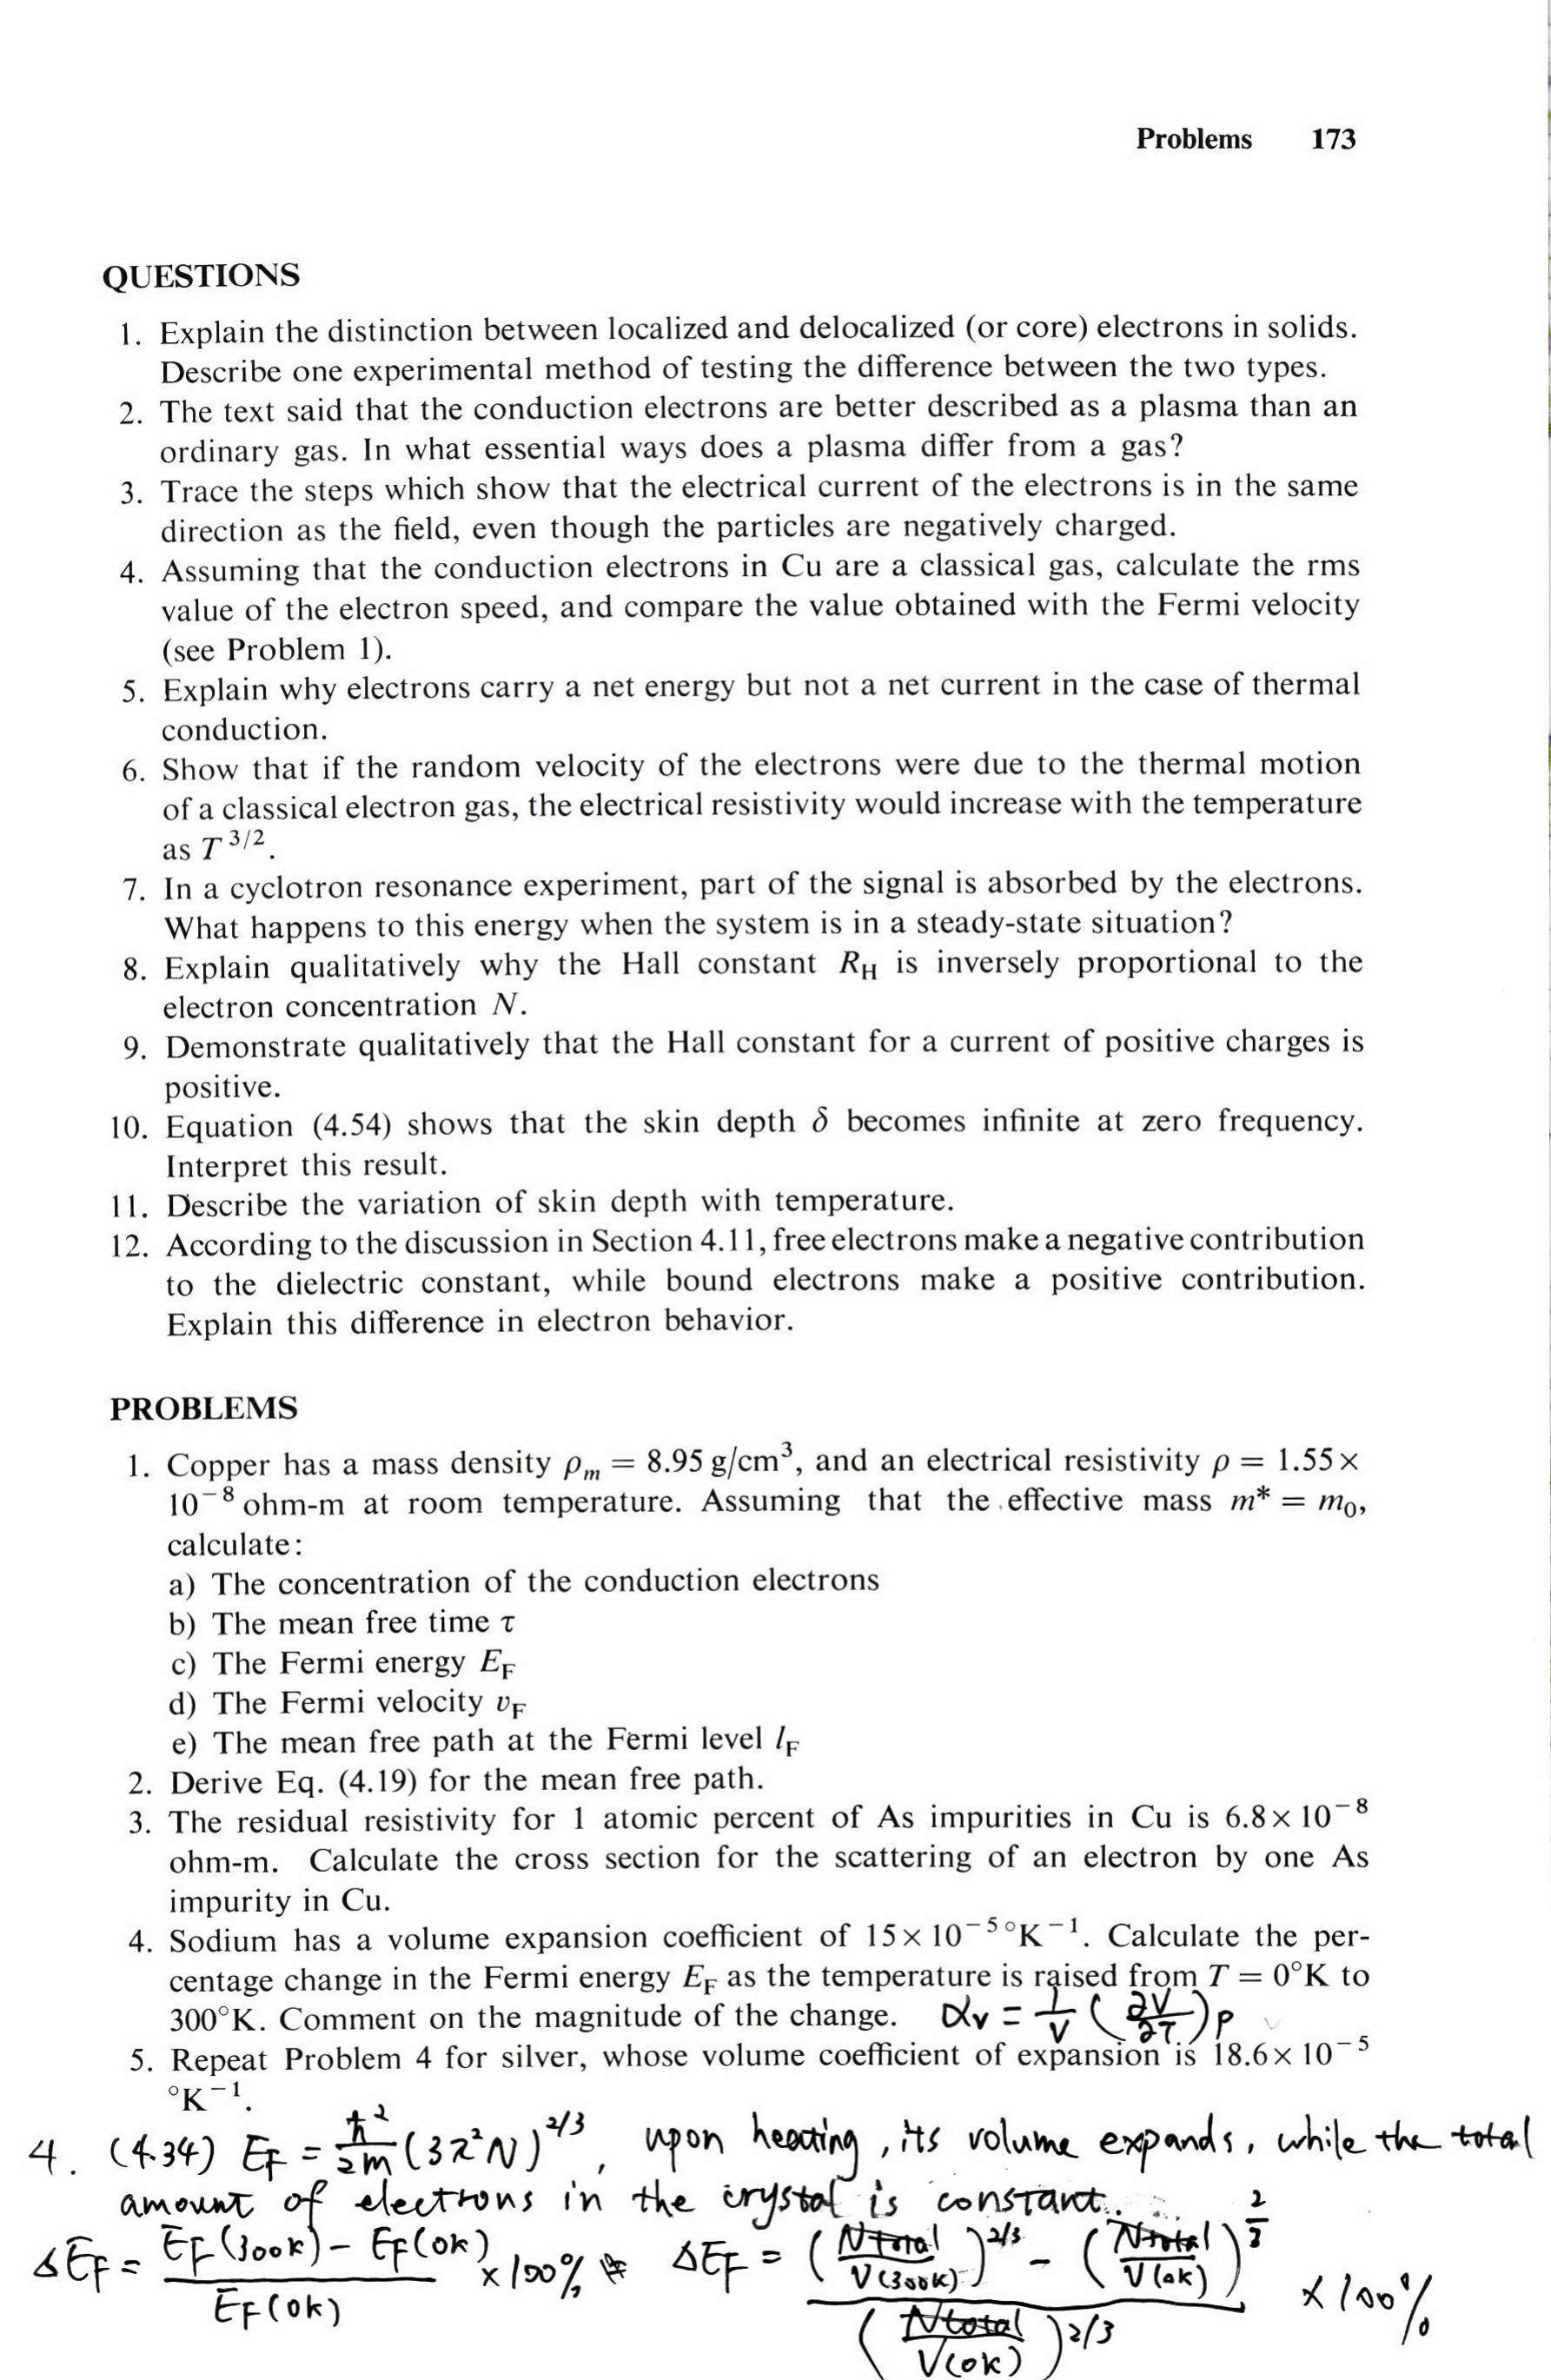 Problems 173
QUESTIONS
1. Explain the distinction between localized and delocalized (or core) electrons in solids.
Describe one experimental method of testing the difference between the two types.
2. The text said that the conduction electrons are better described as a plasma than an
ordinary gas. In what essential ways does a plasma differ from a gas?
3. Trace the steps which show that the electrical current of the electrons is in the same
direction as the field, even though the particles are negatively charged.
4. Assuming that the conduction electrons in Cu are a classical gas, calculate the rms
value of the electron speed, and compare the value obtained with the Fermi velocity
(see Problem 1).
5. Explain why electrons carry a net energy but not a net current in the case of thermal
conduction.
6. Show that if the random velocity of the electrons were due to the thermal motion
of a classical electron gas, the electrical resistivity would increase with the temperature
as T^{3/2}.
7. In a cyclotron resonance experiment, part of the signal is absorbed by the electrons.
What happens to this energy when the system is in a steady-state situation?
8. Explain qualitatively why the Hall constant R_H is inversely proportional to the
electron concentration N.
9. Demonstrate qualitatively that the Hall constant for a current of positive charges is
positive.
10. Equation (4.54) shows that the skin depth δ becomes infinite at zero frequency.
Interpret this result.
11. Describe the variation of skin depth with temperature.
12. According to the discussion in Section 4.11, free electrons make a negative contribution
to the dielectric constant, while bound electrons make a positive contribution.
Explain this difference in electron behavior.
PROBLEMS
1. Copper has a mass density ρ_m = 8.95 g/cm³, and an electrical resistivity ρ = 1.55 ×
10⁻⁸ ohm-m at room temperature. Assuming that the effective mass m* = m₀,
calculate:
a) The concentration of the conduction electrons
b) The mean free time τ
c) The Fermi energy E_F
d) The Fermi velocity v_F
e) The mean free path at the Fermi level l_F
2. Derive Eq. (4.19) for the mean free path.
3. The residual resistivity for 1 atomic percent of As impurities in Cu is 6.8 × 10⁻⁸
ohm-m. Calculate the cross section for the scattering of an electron by one As
impurity in Cu.
4. Sodium has a volume expansion coefficient of 15 × 10⁻⁵ °K⁻¹. Calculate the per-
centage change in the Fermi energy E_F as the temperature is raised from T = 0°K to
300°K. Comment on the magnitude of the change. α_V = 1/V (∂V/∂T)_P
5. Repeat Problem 4 for silver, whose volume coefficient of expansion is 18.6 × 10⁻⁵
°K⁻¹.
4. (4.34) E_F = ħ²/2m (3π²N)^{2/3}, upon heating, its volume expands, while the total
amount of electrons in the crystal is constant.
ΔE_F = (E_F(300K) - E_F(0K))/E_F(0K) × 100% ΔE_F = ((Ntotal/V(300K))^{2/3} - (Ntotal/V(0K))^{2/3})/(Ntotal/V(0K))^{2/3} × 100%